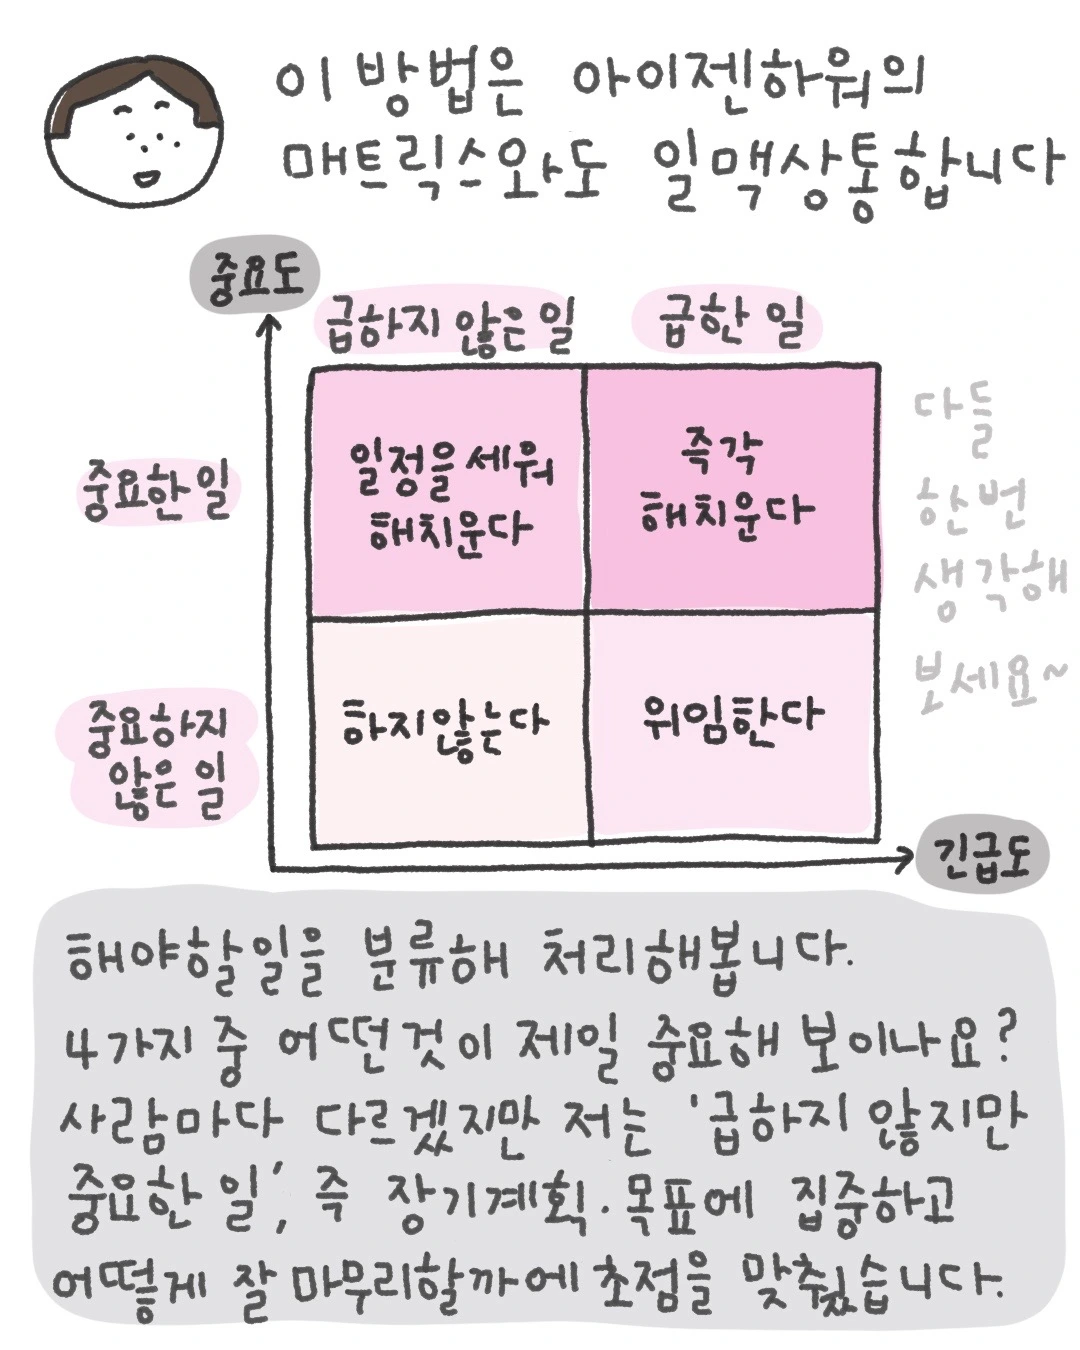 이 방법은 아이젠하워의
매트릭스와도 일맥상통합니다
중요도
급하지 않은 일
급한 일
중요한 일
일정을 세워
해치운다
즉각
해치운다
다들
한번
생각해
보세요~
중요하지
않은 일
하지않는다
위임한다
긴급도
해야할일을 분류해 처리해봅니다.
4가지 중 어떤것이 제일 중요해 보이나요?
사람마다 다르겠지만 저는 '급하지 않지만
중요한 일', 즉 장기계획·목표에 집중하고
어떻게 잘 마무리할까에 초점을 맞췄습니다.